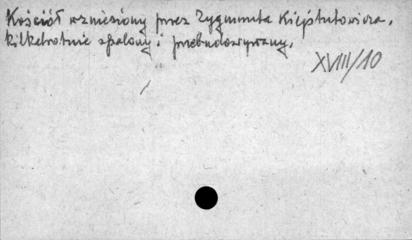 Kościół wzniesiony przez Zygmunta Kiejstutowicza,
kilkakrotnie spalony i przebudowywany.
XVIII/10